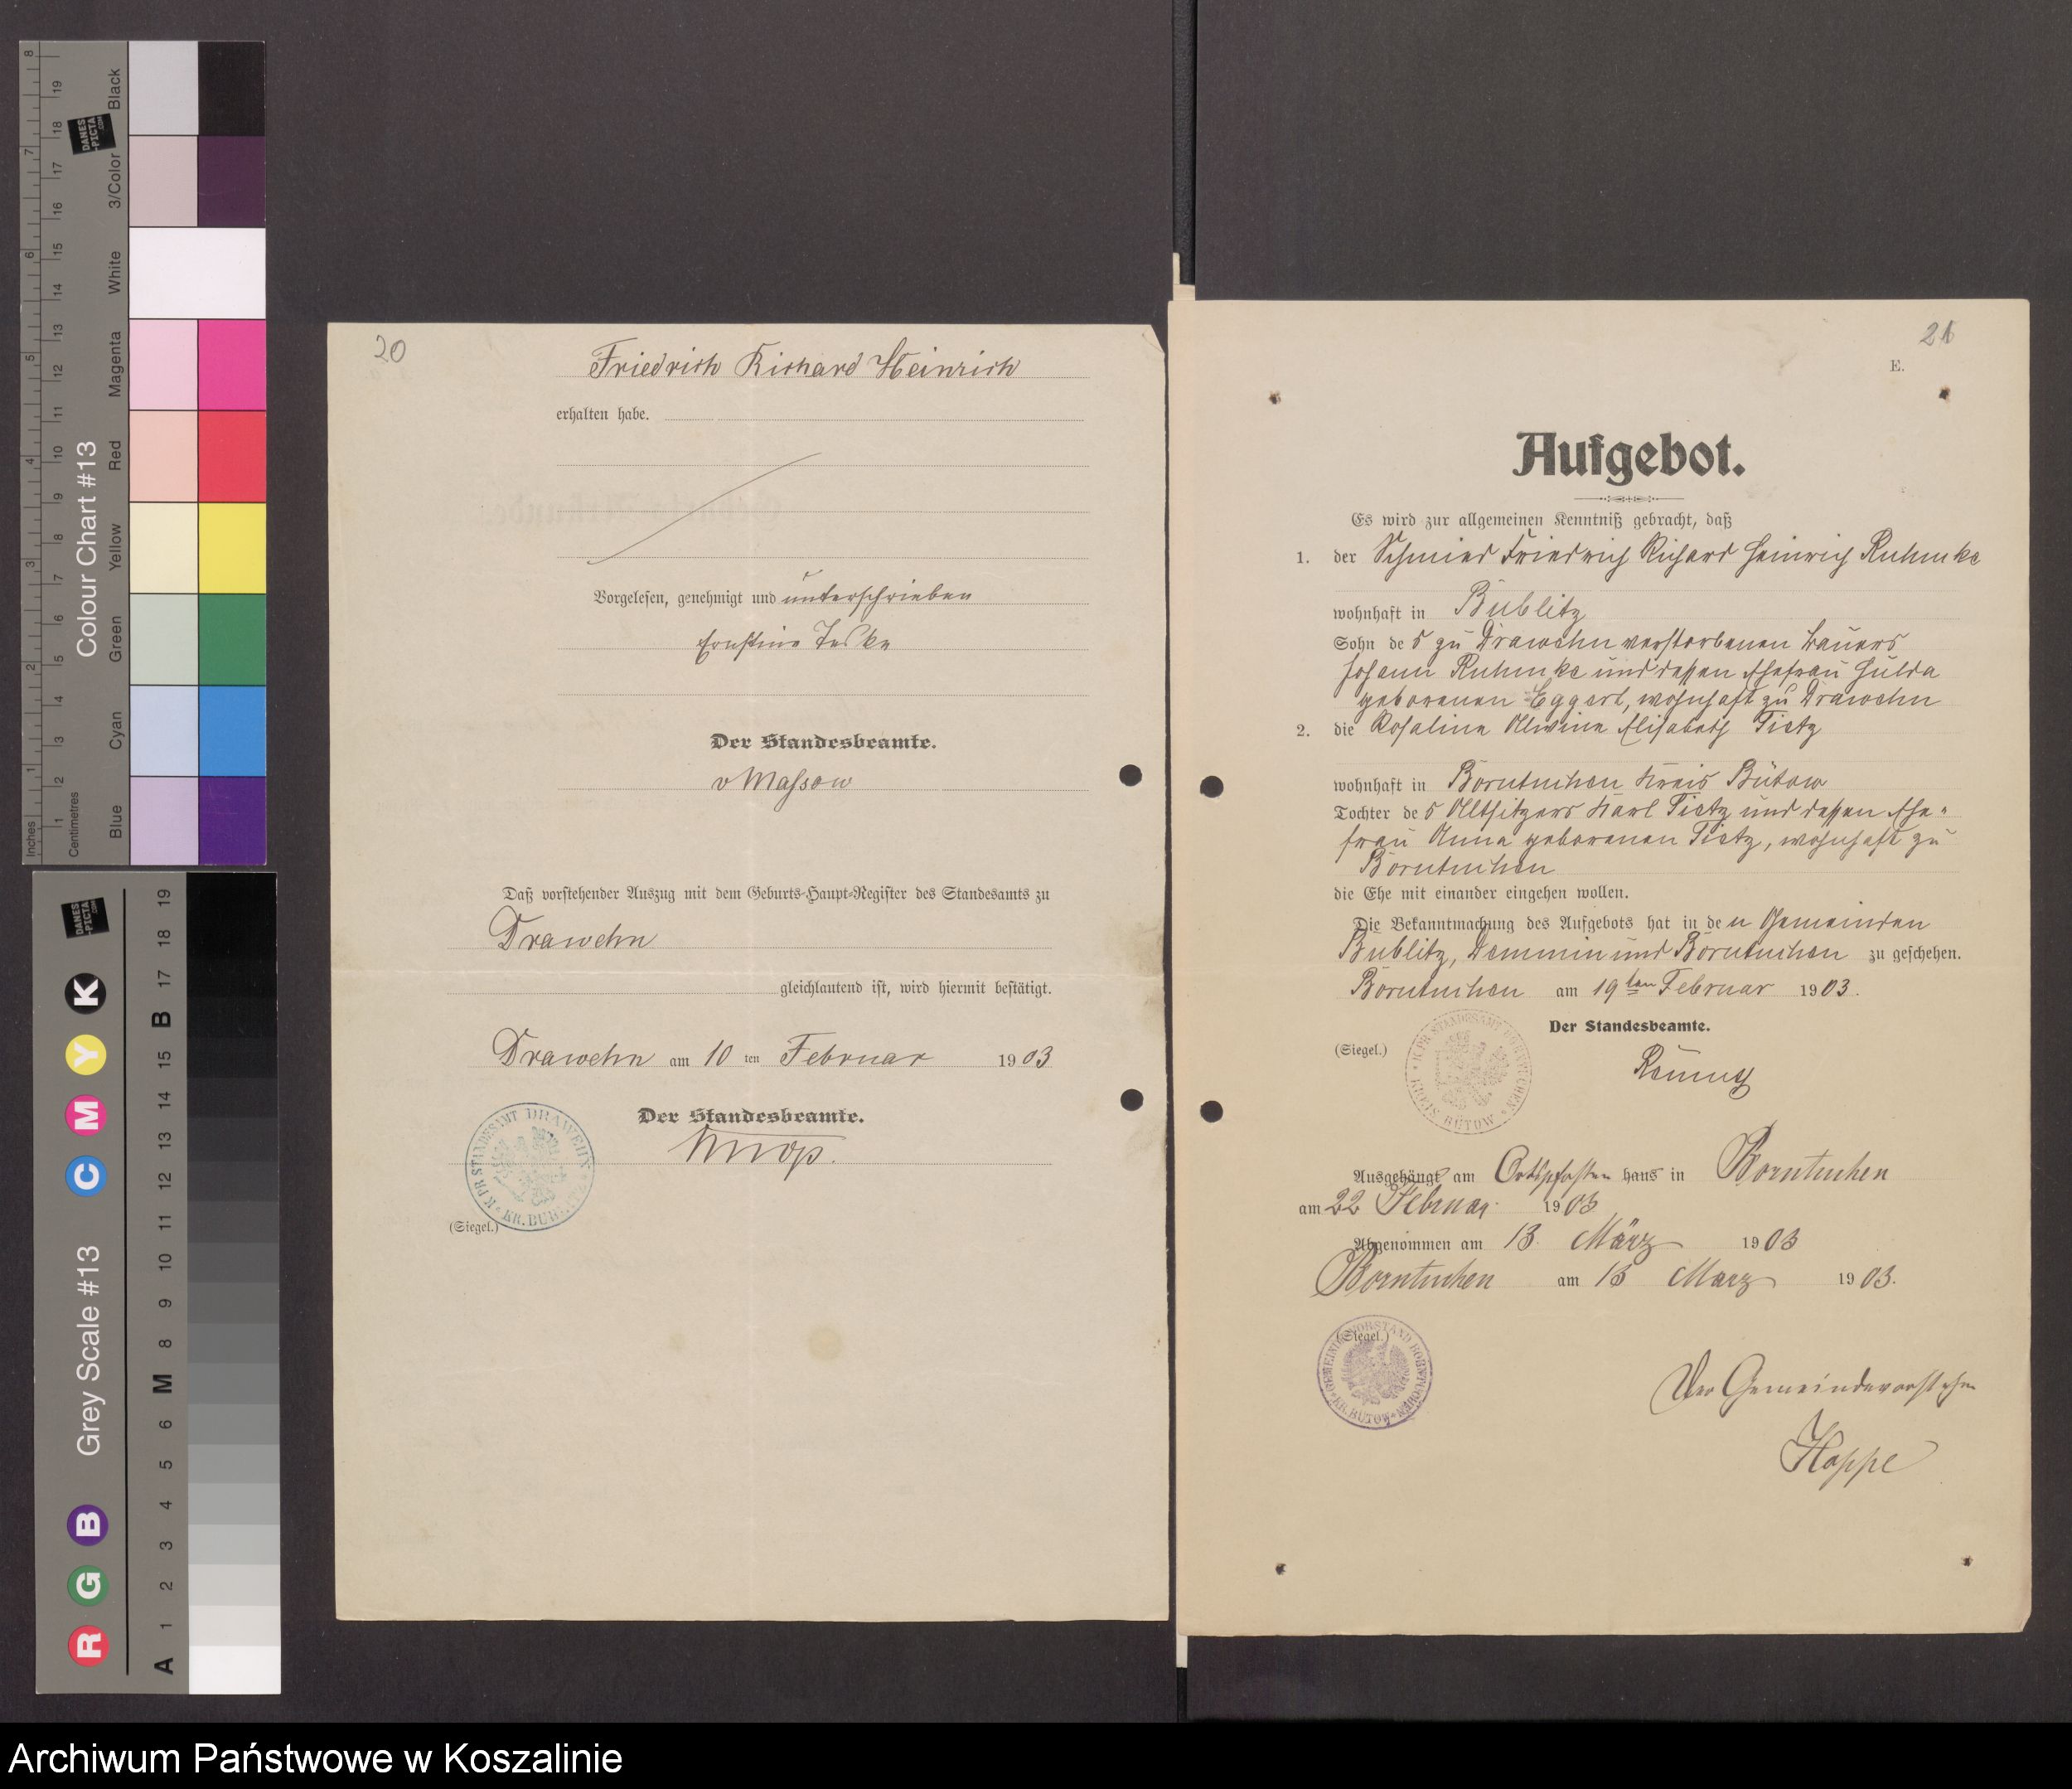 20
Friedrich Richard Heinrich
erhalten habe.
Vorgelesen, genehmigt und unterschrieben
Ernstine Teske
Der Standesbeamte.
v Massow
Daß vorstehender Auszug mit dem Geburts-Haupt-Register des Standesamts zu
Drawehn
gleichlautend ist, wird hiermit bestätigt.
Drawehn am 10 ten Februar 1903
Der Standesbeamte.
Knop.
K. PR. STANDESAMT DRAWEHN * KR. BUBLITZ *
(Siegel.)
21
E.
Aufgebot.
Es wird zur allgemeinen Kenntniß gebracht, daß
1. der Schmied Friedrich Richard Heinrich Ruhmke
wohnhaft in Bublitz
Sohn des zu Drawehn verstorbenen Bauers
Johann Ruhmke und dessen Ehefrau Hulda
geborenen Eggert, wohnhaft zu Drawehn
2. die Rosaline Alwine Elisabeth Tietz
wohnhaft in Borntuchen Kreis Bütow
Tochter des Altsitzers Karl Tietz und dessen Ehe-
frau Anna geborenen Tietz, wohnhaft zu
Borntuchen
die Ehe mit einander eingehen wollen.
Die Bekanntmachung des Aufgebots hat in den Gemeinden
Bublitz, Demmin und Borntuchen zu geschehen.
Borntuchen am 19ten Februar 1903.
Der Standesbeamte.
(Siegel.)
K. PR. STANDESAMT BORNTUCHEN * KREIS BÜTOW *
Ausgehängt am haus in Borntuchen
am 22 Februar 1903
Abgenommen am 13. März 1903
Borntuchen am 13 März 1903.
(Siegel.)
GEMEINDE VORSTAND BORNTUCHEN * KR. BÜTOW *
Der Gemeindevorsteher
Hoppe
Inches
Centimetres
Colour Chart #13
Blue Cyan Green Yellow Red Magenta White 3/Color Black
DANES-PICTA.COM
Grey Scale #13
R G B C M Y K
A 1 2 3 4 5 6 M 8 9 10 11 12 13 14 15 B 17 18 19
DANES-PICTA.COM
Archiwum Państwowe w Koszalinie